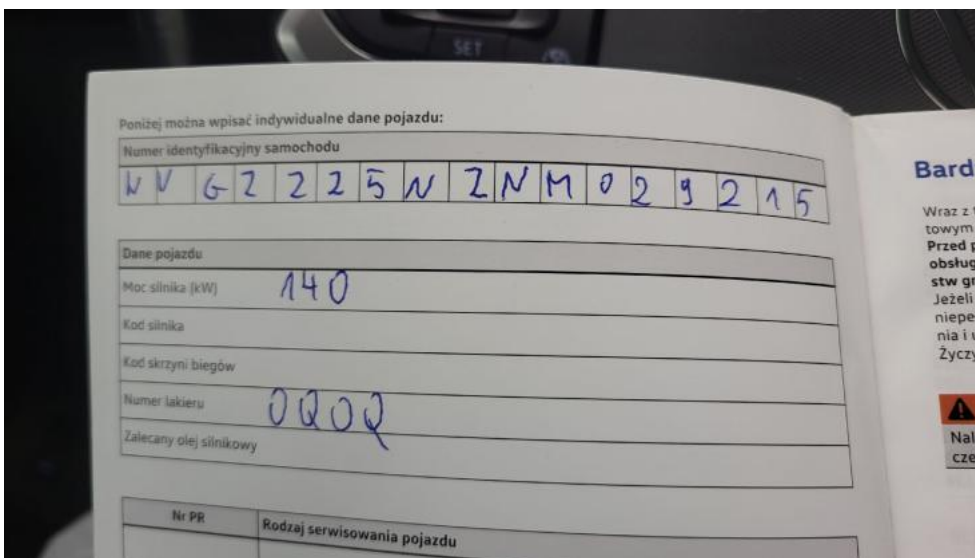 SET
Poniżej można wpisać indywidualne dane pojazdu:
Numer identyfikacyjny samochodu
W V G Z Z Z 5 N Z N M 0 2 9 2 1 5
Dane pojazdu
Moc silnika (kW) 140
Kod silnika
Kod skrzyni biegów
Numer lakieru 0Q0Q
Zalecany olej silnikowy
Nr PR Rodzaj serwisowania pojazdu
Bard
Wraz z
towym
Przed
obsług
stw
Jeżeli
niepe
nia i
Życzy
Nal
cze